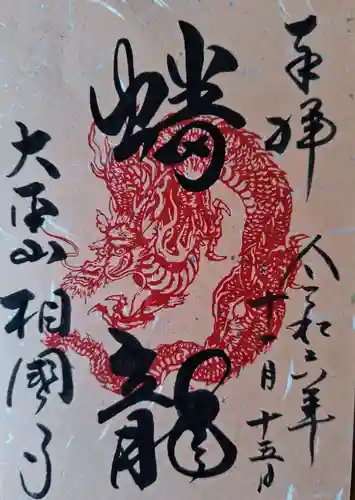 奉拝
令和六年
十一月十五日
蟠龍
大本山相國寺